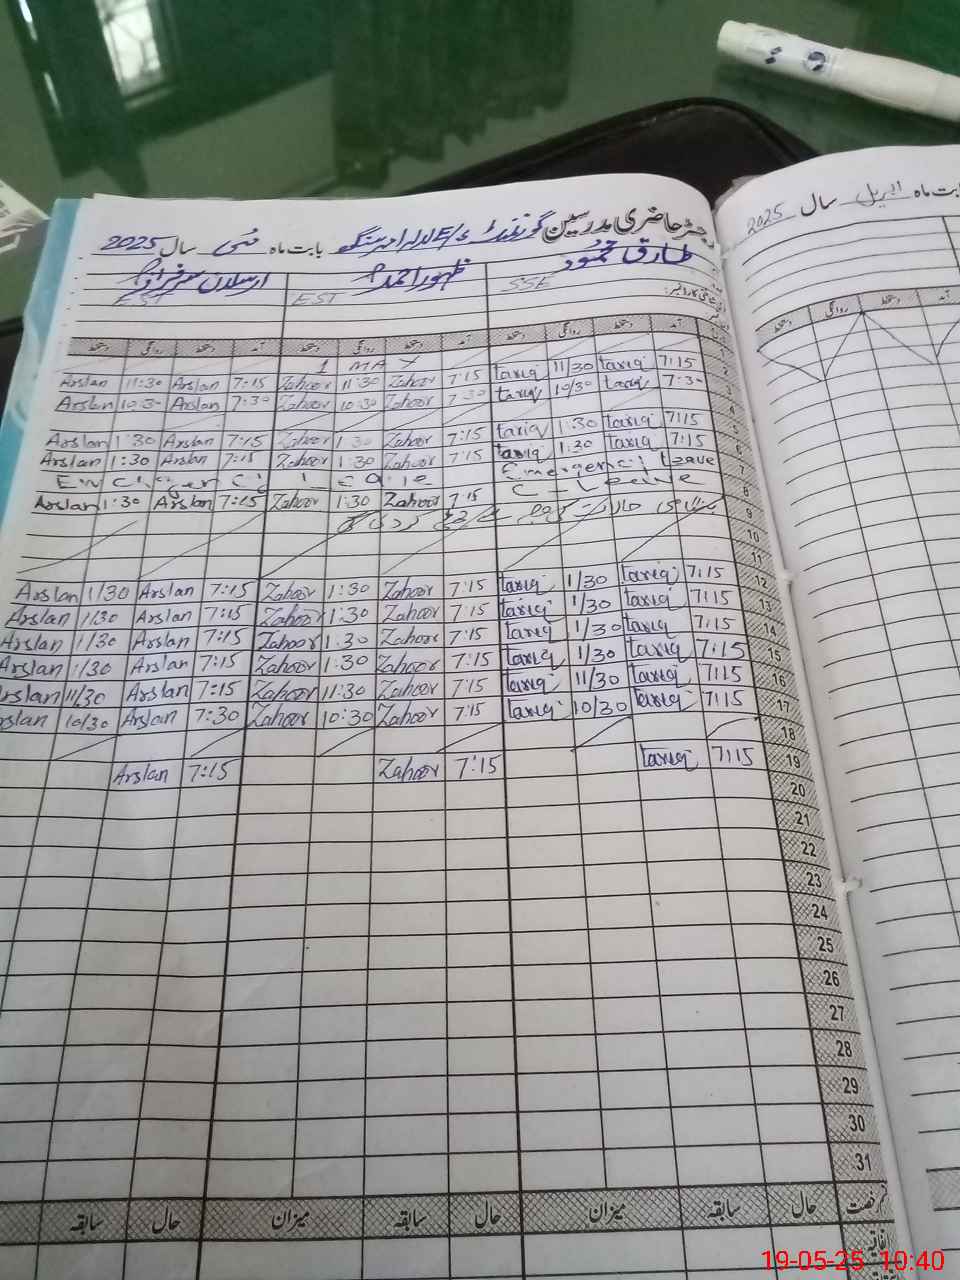 رجسٹر حاضری مدرسین گورنمنٹ بابت ماہ مئی سال 2025
طارق محمود ظہور احمد ارسلان سرفراز
SSE EST EST
آمد دستخط روانگی دستخط آمد دستخط روانگی دستخط آمد دستخط روانگی دستخط
1 MAY
Arslan 11:30 Arslan 7:15 Zahoor 11:30 Zahoor 7:15 tariq 11/30 tariq 7:15 2
Arslan 10:30 Arslan 7:30 Zahoor 10:30 Zahoor 7:30 tariq 10/30 tariq 7:30
4
Arslan 1:30 Arslan 7:15 Zahoor 1:30 Zahoor 7:15 tariq 1:30 tariq 7:15 5
Arslan 1:30 Arslan 7:15 Zahoor 1:30 Zahoor 7:15 tariq 1:30 tariq 7:15 6
Emergency Leave 7
Arslan 1:30 Arslan 7:15 Zahoor 1:30 Zahoor 7:15 8
9
10
11
Arslan 1/30 Arslan 7:15 Zahoor 1:30 Zahoor 7:15 tariq 1/30 tariq 7:15 12
Arslan 1/30 Arslan 7:15 Zahoor 1:30 Zahoor 7:15 tariq 1/30 tariq 7:15 13
Arslan 1/30 Arslan 7:15 Zahoor 1:30 Zahoor 7:15 tariq 1/30 tariq 7:15 14
Arslan 1/30 Arslan 7:15 Zahoor 1:30 Zahoor 7:15 tariq 1/30 tariq 7:15 15
Arslan 11/30 Arslan 7:15 Zahoor 11:30 Zahoor 7:15 tariq 11/30 tariq 7:15 16
Arslan 10/30 Arslan 7:30 Zahoor 10:30 Zahoor 7:15 tariq 10/30 tariq 7:15 17
18
Arslan 7:15 Zahoor 7:15 tariq 7:15 19
20
21
22
23
24
25
26
27
28
29
30
31
حال سابقہ میزان حال سابقہ میزان حال سابقہ
بابت ماہ اپریل سال 2025
آمد دستخط روانگی دستخط
19-05-25 10:40